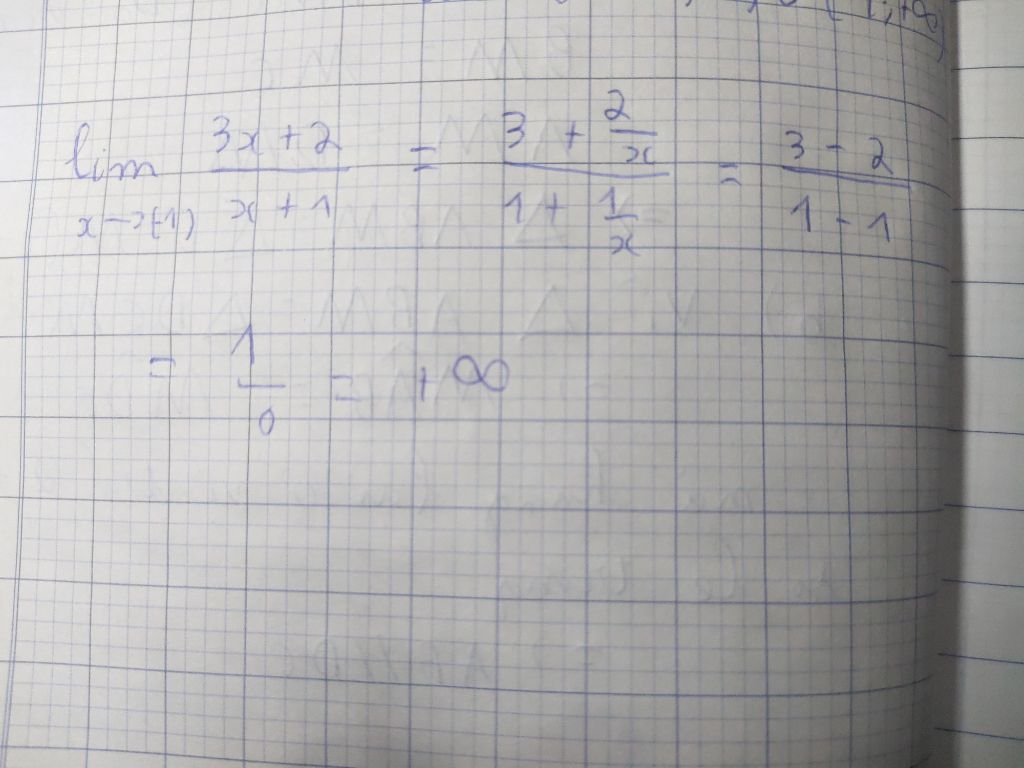 lim 3x+2 / x+1 = 3 + 2/x / 1 + 1/x = 3 - 2 / 1 - 1
x→(-1)
= 1/0 = +∞